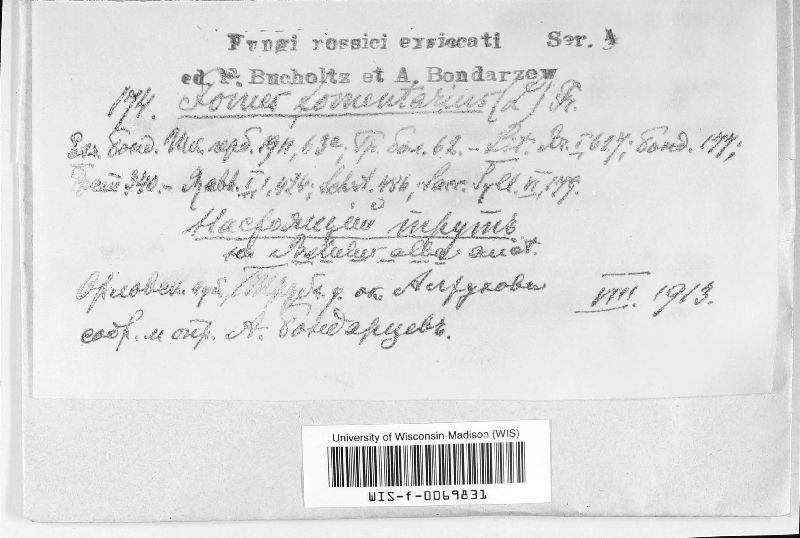 Fungi rossici exsiccati Ser. A
ed. F. Bucholtz et A. Bondarzew
174. Fomes fomentarius (L) Fr.
Exs. Бонд. 1911, 63a; Гр. бол. 62. – Lit. Fr. I, 687; Бонд. 177;
340. – Rabh. I, 1, 424; Schröt. 486; Sacc. Syll. VI, 179.
Настоящій трутъ
на Betulae albae
Орловск. губ., Трубч. у. ок. Алтухова VIII. 1913.
собр. и опр. А. Бондарцевъ.
University of Wisconsin-Madison (WIS)
WIS-f-0069831